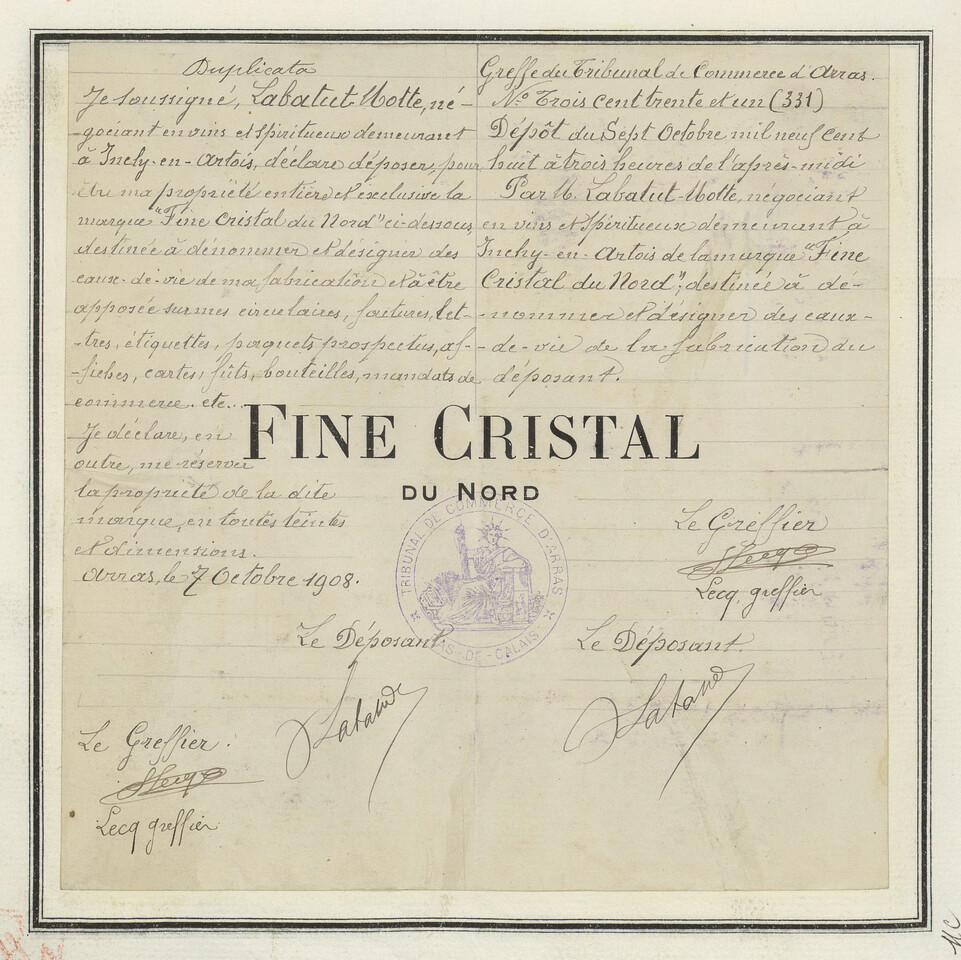 Duplicata
Je soussigné, Labatut-Motte, né-
-gociant en vins et spiritueux demeurant
à Inchy-en-Artois, déclare déposer, pour
être ma propriété entière et exclusive la
marque "Fine Cristal du Nord" ci-dessous
destinée à dénommer et désigner des
eaux-de-vie de ma fabrication et à être
apposée sur mes circulaires, factures, let-
-tres, étiquettes, paquets prospectus, af-
-fiches, cartes, fûts, bouteilles, mandats de
commerce. etc..
Je déclare, en
outre, me réserver
la propriété de la dite
marque, en toutes teintes
et dimensions.
Arras, le 7 Octobre 1908.
Le Déposant.
Labatut
Le Greffier.
Lecq
Lecq greffier
Greffe du Tribunal de Commerce d'Arras.
No Trois cent trente et un (331)
Dépôt du Sept Octobre mil neuf cent
huit à trois heures de l'après-midi
Par M. Labatut-Motte, négociant
en vins et spiritueux demeurant à
Inchy-en-Artois de la marque "Fine
Cristal du Nord"; destinée à dé-
-nommer et désigner des eaux-
-de-vie de la fabrication du
déposant.
FINE CRISTAL
DU NORD
TRIBUNAL DE COMMERCE D'ARRAS
PAS-DE-CALAIS
Le Greffier
Lecq
Lecq greffier
Le Déposant.
Labatut